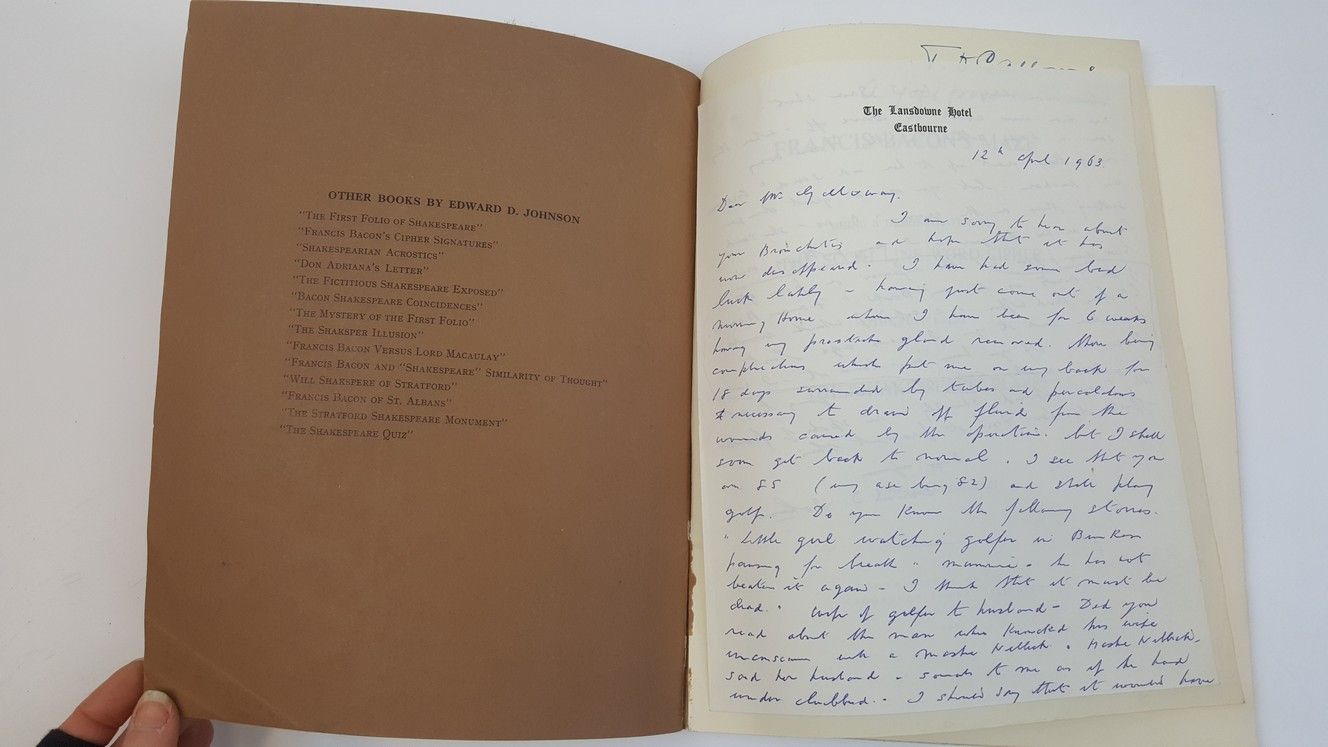 OTHER BOOKS BY EDWARD D. JOHNSON
"THE FIRST FOLIO OF SHAKESPEARE"
"FRANCIS BACON'S CIPHER SIGNATURES"
"SHAKESPEARIAN ACROSTICS"
"DON ADRIANA'S LETTER"
"THE FICTITIOUS SHAKESPEARE EXPOSED"
"BACON SHAKESPEARE COINCIDENCES"
"THE MYSTERY OF THE FIRST FOLIO"
"THE SHAKSPER ILLUSION"
"FRANCIS BACON VERSUS LORD MACAULAY"
"FRANCIS BACON AND "SHAKESPEARE" SIMILARITY OF THOUGHT"
"WILL SHAKSPERE OF STRATFORD"
"FRANCIS BACON OF ST. ALBANS"
"THE STRATFORD SHAKESPEARE MONUMENT"
"THE SHAKESPEARE QUIZ"
The Lansdowne Hotel
Eastbourne
12th April 1963
Dear Mr Galloway.
I am sorry to hear about
your Bronchitis and hope that it has
now disappeared. I have had some bad
luck lately - having just come out of a
Nursing Home where I have been for 6 weeks
having my prostate gland removed. there being
complications which put me on my back for
18 days surrounded by tubes and percolators
necessary to drain off fluid from the
wounds caused by the operation. but I shall
soon get back to normal. I see that you
are 85 (my age being 82) and still play
golf. Do you know the following stories.
"Little girl watching golfer in Bunker
pausing for breath " mummie - he has not
beaten it again - I think that it must be
dead." wife of golfer to husband - Did you
read about the man who knocked his wife
with a mashie Niblick. Mashie Niblick -
said her husband - sounds to me as if he had
under clubbed. - I should say that it would have